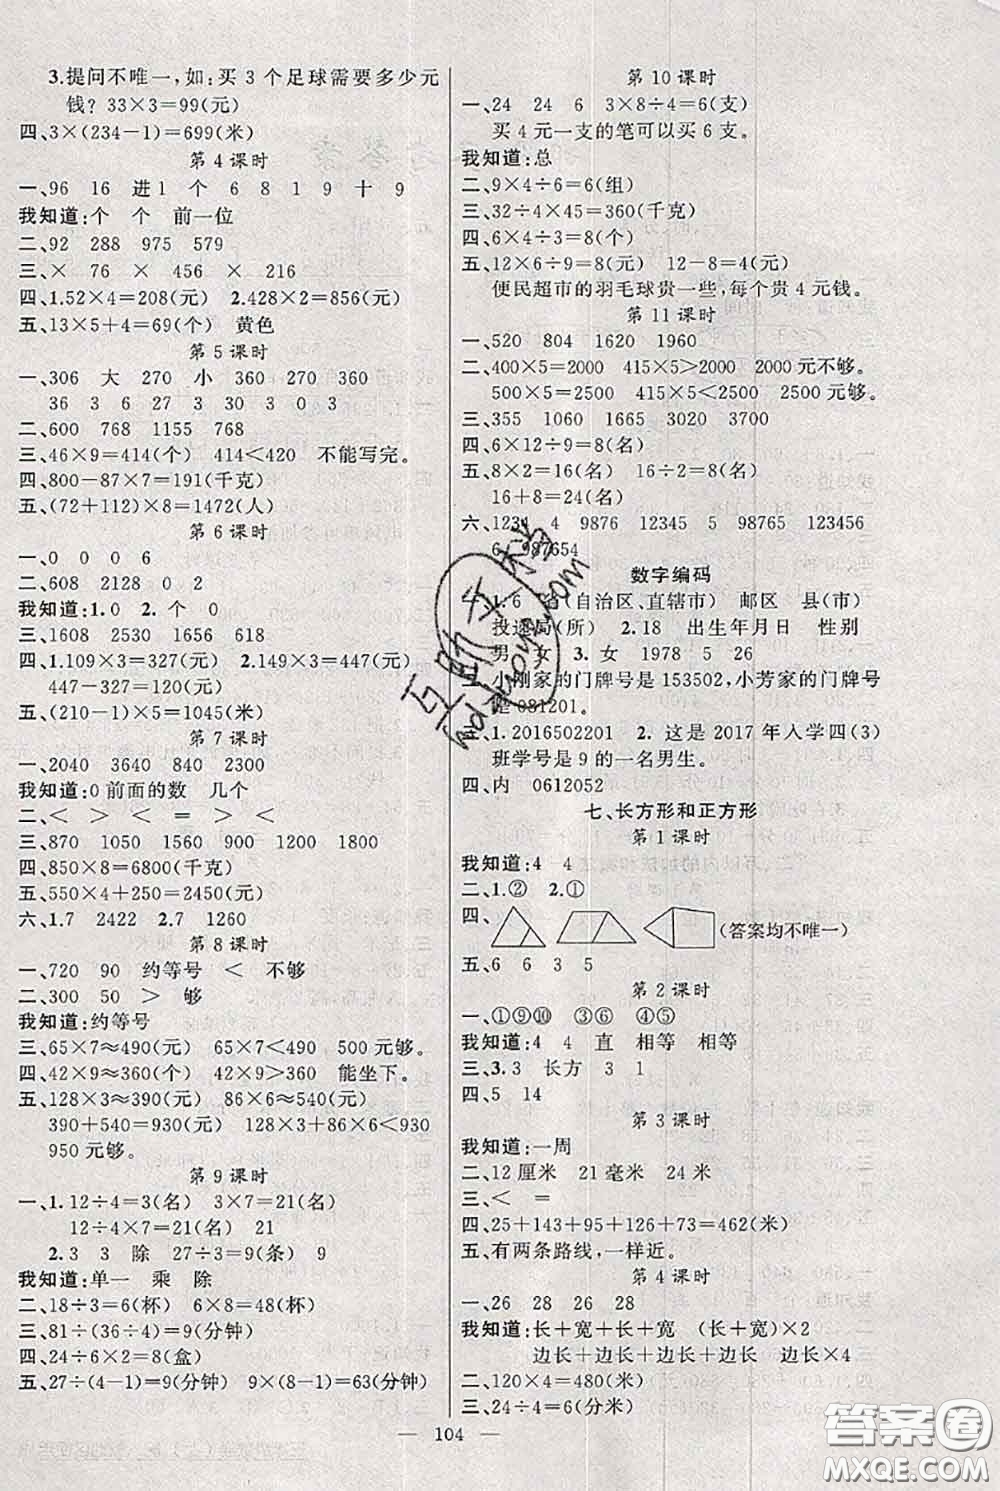 3.提问不唯一,如:买 3 个足球需要多少元
钱? 33×3=99(元)
四、3×(234-1)=699(米)
第 4 课时
一、96 16 进1 个 6 8 1 9 十 9
我知道:个 个 前一位
二、92 288 975 579
三、× 76 × 456 × 216
四、1.52×4=208(元) 2.428×2=856(元)
五、13×5+4=69(个) 黄色
第 5 课时
一、306 大 270 小 360 270 360
36 3 6 27 3 30 3 0 3
二、600 768 1155 768
三、46×9=414(个) 414<420 不能写完。
四、800-87×7=191(千克)
五、(72+112)×8=1472(人)
第 6 课时
一、0 0 0 6
二、608 2128 0 2
我知道:1.0 2.个 0
三、1608 2530 1656 618
四、1.109×3=327(元) 2.149×3=447(元)
447-327=120(元)
五、(210-1)×5=1045(米)
第 7 课时
一、2040 3640 840 2300
我知道:0 前面的数 几个
二、< > < = > <
三、870 1050 1560 900 1350 1800
四、850×8=6800(千克)
五、550×4+250=2450(元)
六、1.7 2422 2.7 1260
第 8 课时
一、720 90 约等号 < 不够
二、300 50 > 够
我知道:约等号
三、65×7≈490(元) 65×7<490 500 元够。
四、42×9≈360(个) 42×9>360 能坐下。
五、128×3≈390(元) 86×6≈540(元)
390+540=930(元) 128×3+86×6<930
950 元够。
第 9 课时
一、1.12÷4=3(名) 3×7=21(名)
12÷4×7=21(名) 21
2.3 3 除 27÷3=9(条) 9
我知道:单一 乘 除
二、18÷3=6(杯) 6×8=48(杯)
三、81÷(36÷4)=9(分钟)
四、24÷6×2=8(盒)
五、27÷(4-1)=9(分钟) 9×(8-1)=63(分钟)
第 10 课时
一、24 24 6 3×8÷4=6(支)
买 4 元一支的笔可以买 6 支。
我知道:总
二、9×4÷6=6(组)
三、32÷4×45=360(千克)
四、6×4÷3=8(个)
五、12×6÷9=8(元) 12-8=4(元)
便民超市的羽毛球贵一些,每个贵 4 元钱。
第 11 课时
一、520 804 1620 1960
二、400×5=2000 415×5>2000 2000 元不够。
500×5=2500 415×5<2500 2500 元够。
三、355 1060 1665 3020 3700
四、6×12÷9=8(名)
五、8×2=16(名) 16÷2=8(名)
16+8=24(名)
六、1234 4 9876 12345 5 98765 123456
6 987654
数字编码
一、1.6 省(自治区、直辖市) 邮区 县(市)
投递局(所) 2.18 出生年月日 性别
男 女 3.女 1978 5 26
二、小刚家的门牌号是 153502,小芳家的门牌号
是 081201。
三、1.2016502201 2.这是 2017 年入学四(3)
班学号是 9 的一名男生。
四、内 0612052
七、长方形和正方形
第 1 课时
我知道:4 4
二、1.② 2.①
四、 (答案均不唯一)
五、6 6 3 5
第 2 课时
一、①⑨⑩ ③⑥ ④⑤
我知道:4 4 直 相等 相等
三、3.3 长方 3 1
四、5 14
第 3 课时
我知道:一周
二、12 厘米 21 毫米 24 米
三、< =
四、25+143+95+126+73=462(米)
五、有两条路线,一样近。
第 4 课时
一、26 28 26 28
我知道:长+宽+长+宽 (长+宽)×2
边长+边长+边长+边长 边长×4
二、120×4=480(米)
三、24÷4=6(分米)
104
答案圈
MXQE.COM